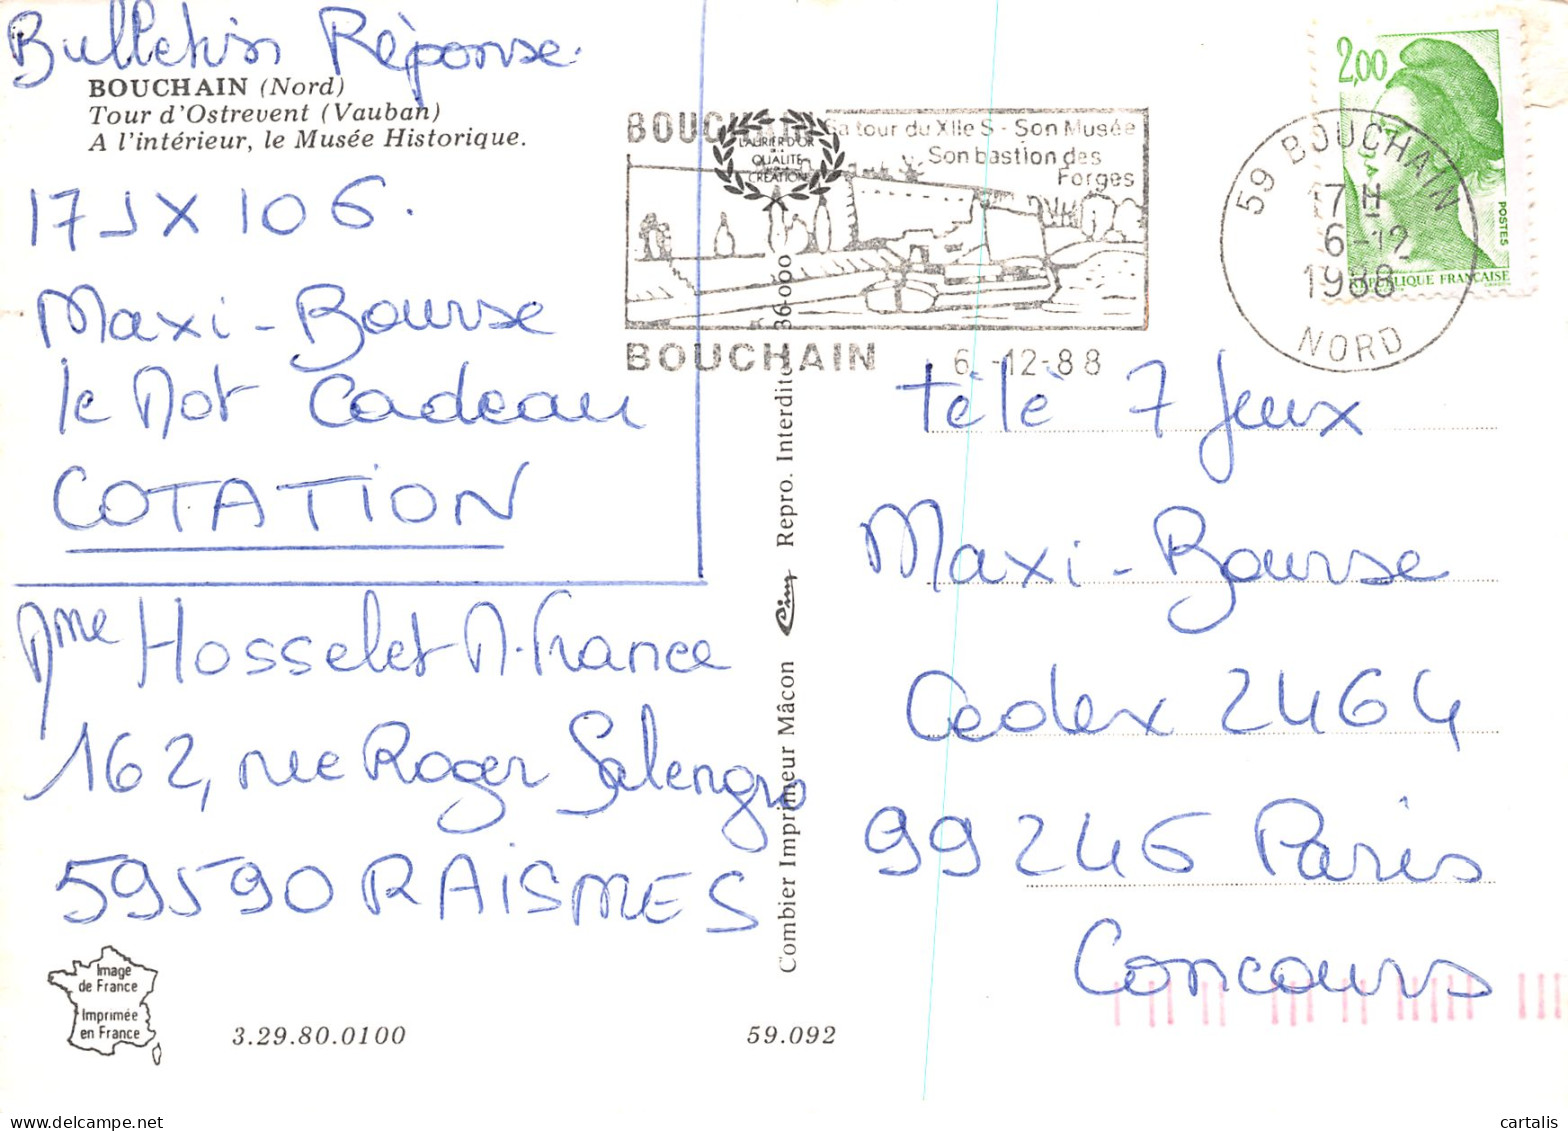 Bulletin Réponse.
BOUCHAIN (Nord)
Tour d'Ostrevent (Vauban)
A l'intérieur, le Musée Historique.
17 J X 106.
Maxi-Bourse
le Mot Cadeau
COTATION
Mme Hosselet M.France
162, rue Roger Salengro
59590 RAISMES
Image
de France
Imprimée
en France
3.29.80.0100
59.092
Combier Imprimeur Mâcon Cim Repro. Interdite
LAURIER D'OR
QUALITÉ
CRÉATION
BOUCHAIN Sa tour du XIIe S - Son Musée
Son bastion des
Forges
BOUCHAIN 6-12-88
59 BOUCHAIN
17 H
6-12
1988
NORD
2,00
POSTES
REPUBLIQUE FRANÇAISE
télé 7 Jeux
Maxi-Bourse
Cedex 2464
99246 Paris
Concours
cartalis